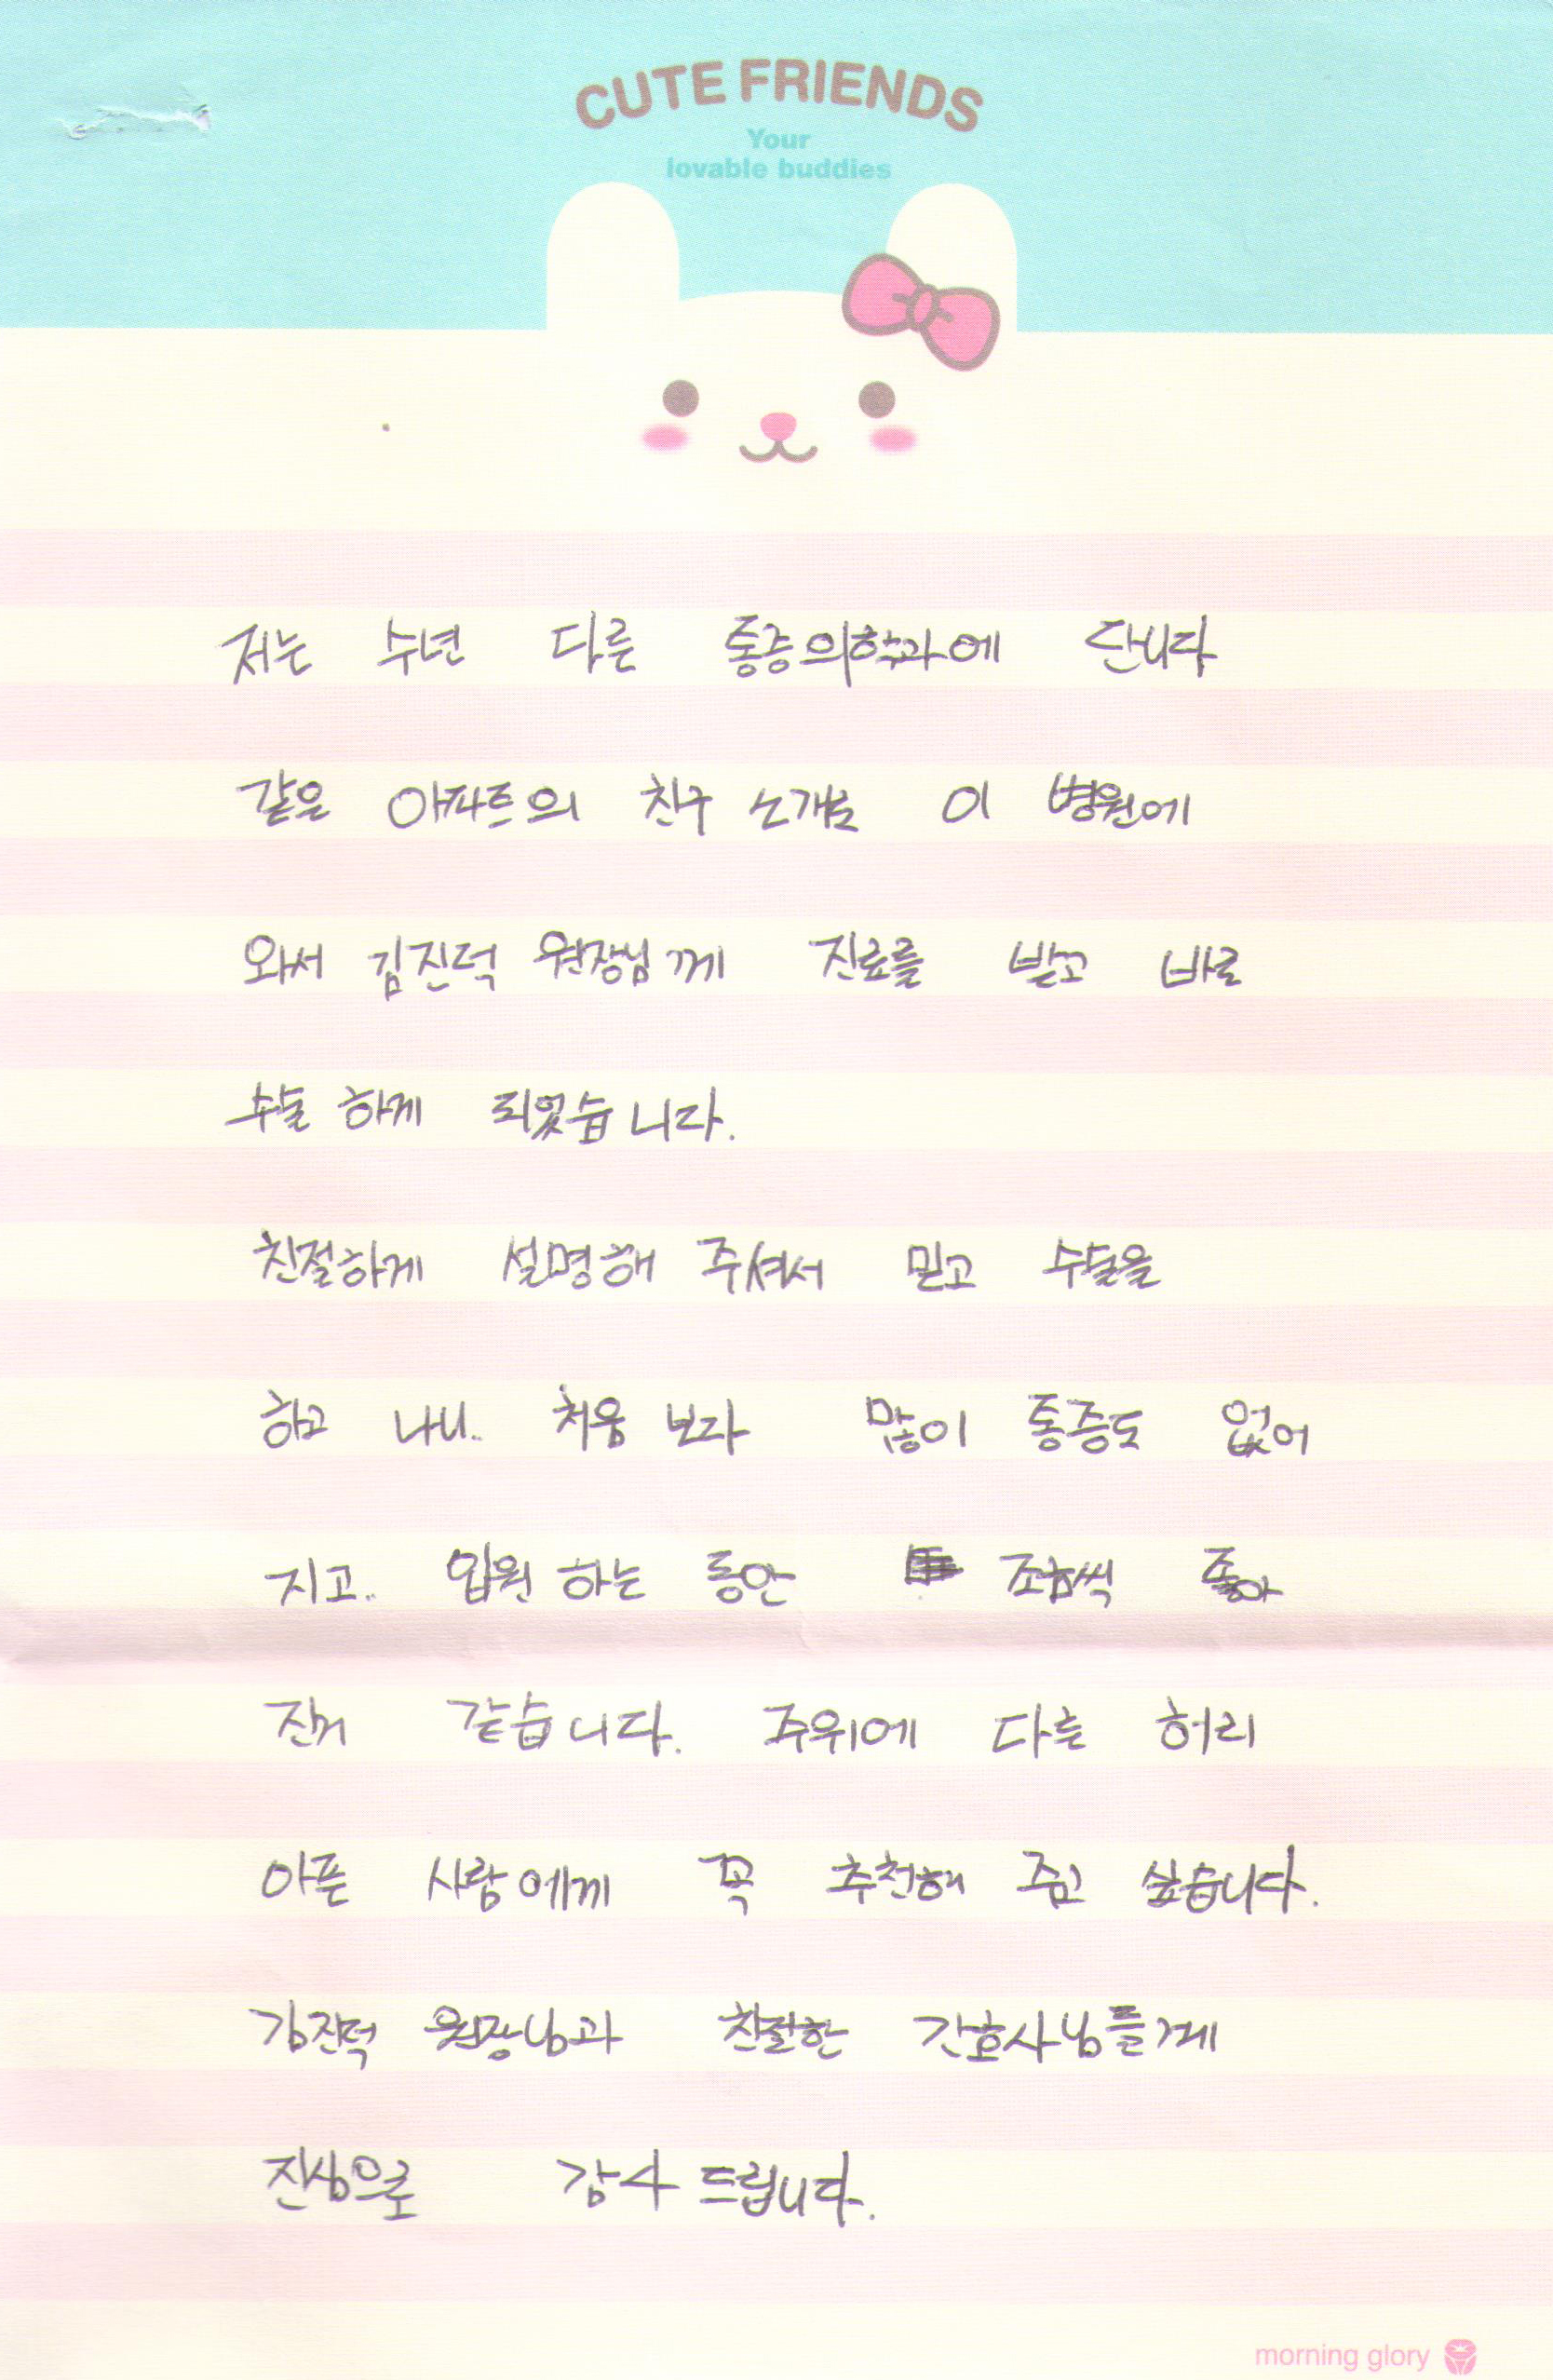 CUTE FRIENDS
Your
lovable buddies
저는 수년 다른 통증의학과에 단니다
같은 아파트의 친구 소개로 이 병원에
와서 김진덕 원장님께 진료를 받고 바로
수술 하게 되었습니다.
친절하게 설명해 주셔서 믿고 수술을
하고 나니.. 처음 보다 많이 통증도 없어
지고.. 입원 하는 동안 조금씩 좋아
진거 같습니다. 주위에 다른 허리
아픈 사람에게 꼭 추천해 주고 싶습니다.
김진덕 원장님과 친절한 간호사님들게
진심으로 감사 드립니다.
morning glory